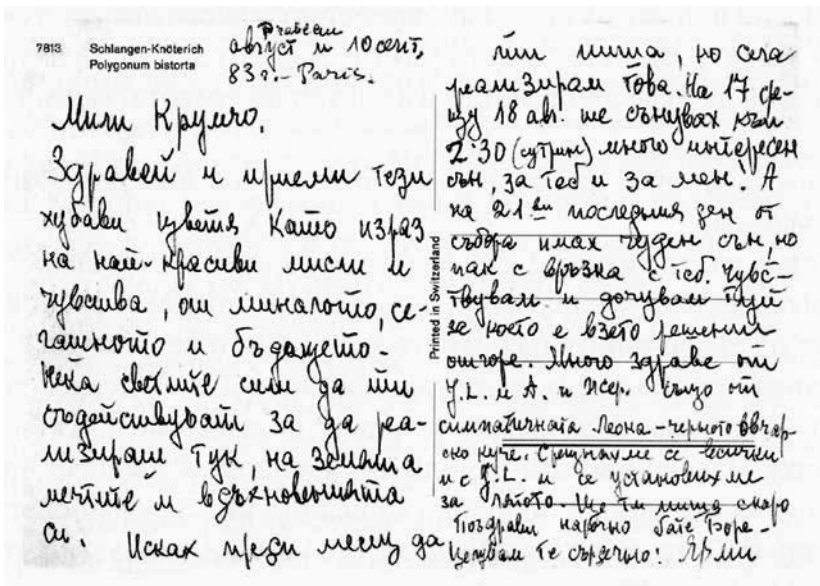 7813 Schlangen-Knöterich
Polygonum bistorta
август и 10 септ.
83 г. – Paris.
Мили Крумчо,
Здравей и приеми тези
хубави цветя като израз
на най-красиви мисли и
чувства, от миналото, се-
гашното и бъдещето –
Нека светлите сили да ти
съдействуват за да реа-
лизираш тук, на Земята
мечтите и вдъхновенията
си. Исках преди месец да
ти пиша, но сега
реализирам това. На 17 сре-
щу 18 авг. те сънувах към
2·30 (сутрин) много интересен
сън, за теб и за мен. А
на 21ви последния ден от
събора имах чуден сън, но
пак с връзка с теб. Чувс-
твувам и дочувам
че което е взето решение
отгоре. Много здраве от
J.L. и А. и Жер. също от
симпатичната Леона – черното овчар-
ско куче. Срещнахме се всички
и с J.L. и се установихме
за лятото Ще ти пиша скоро
Поздрави нарочно бате Боре –
Целувам те сърдечно: Ярми
Printed in Switzerland